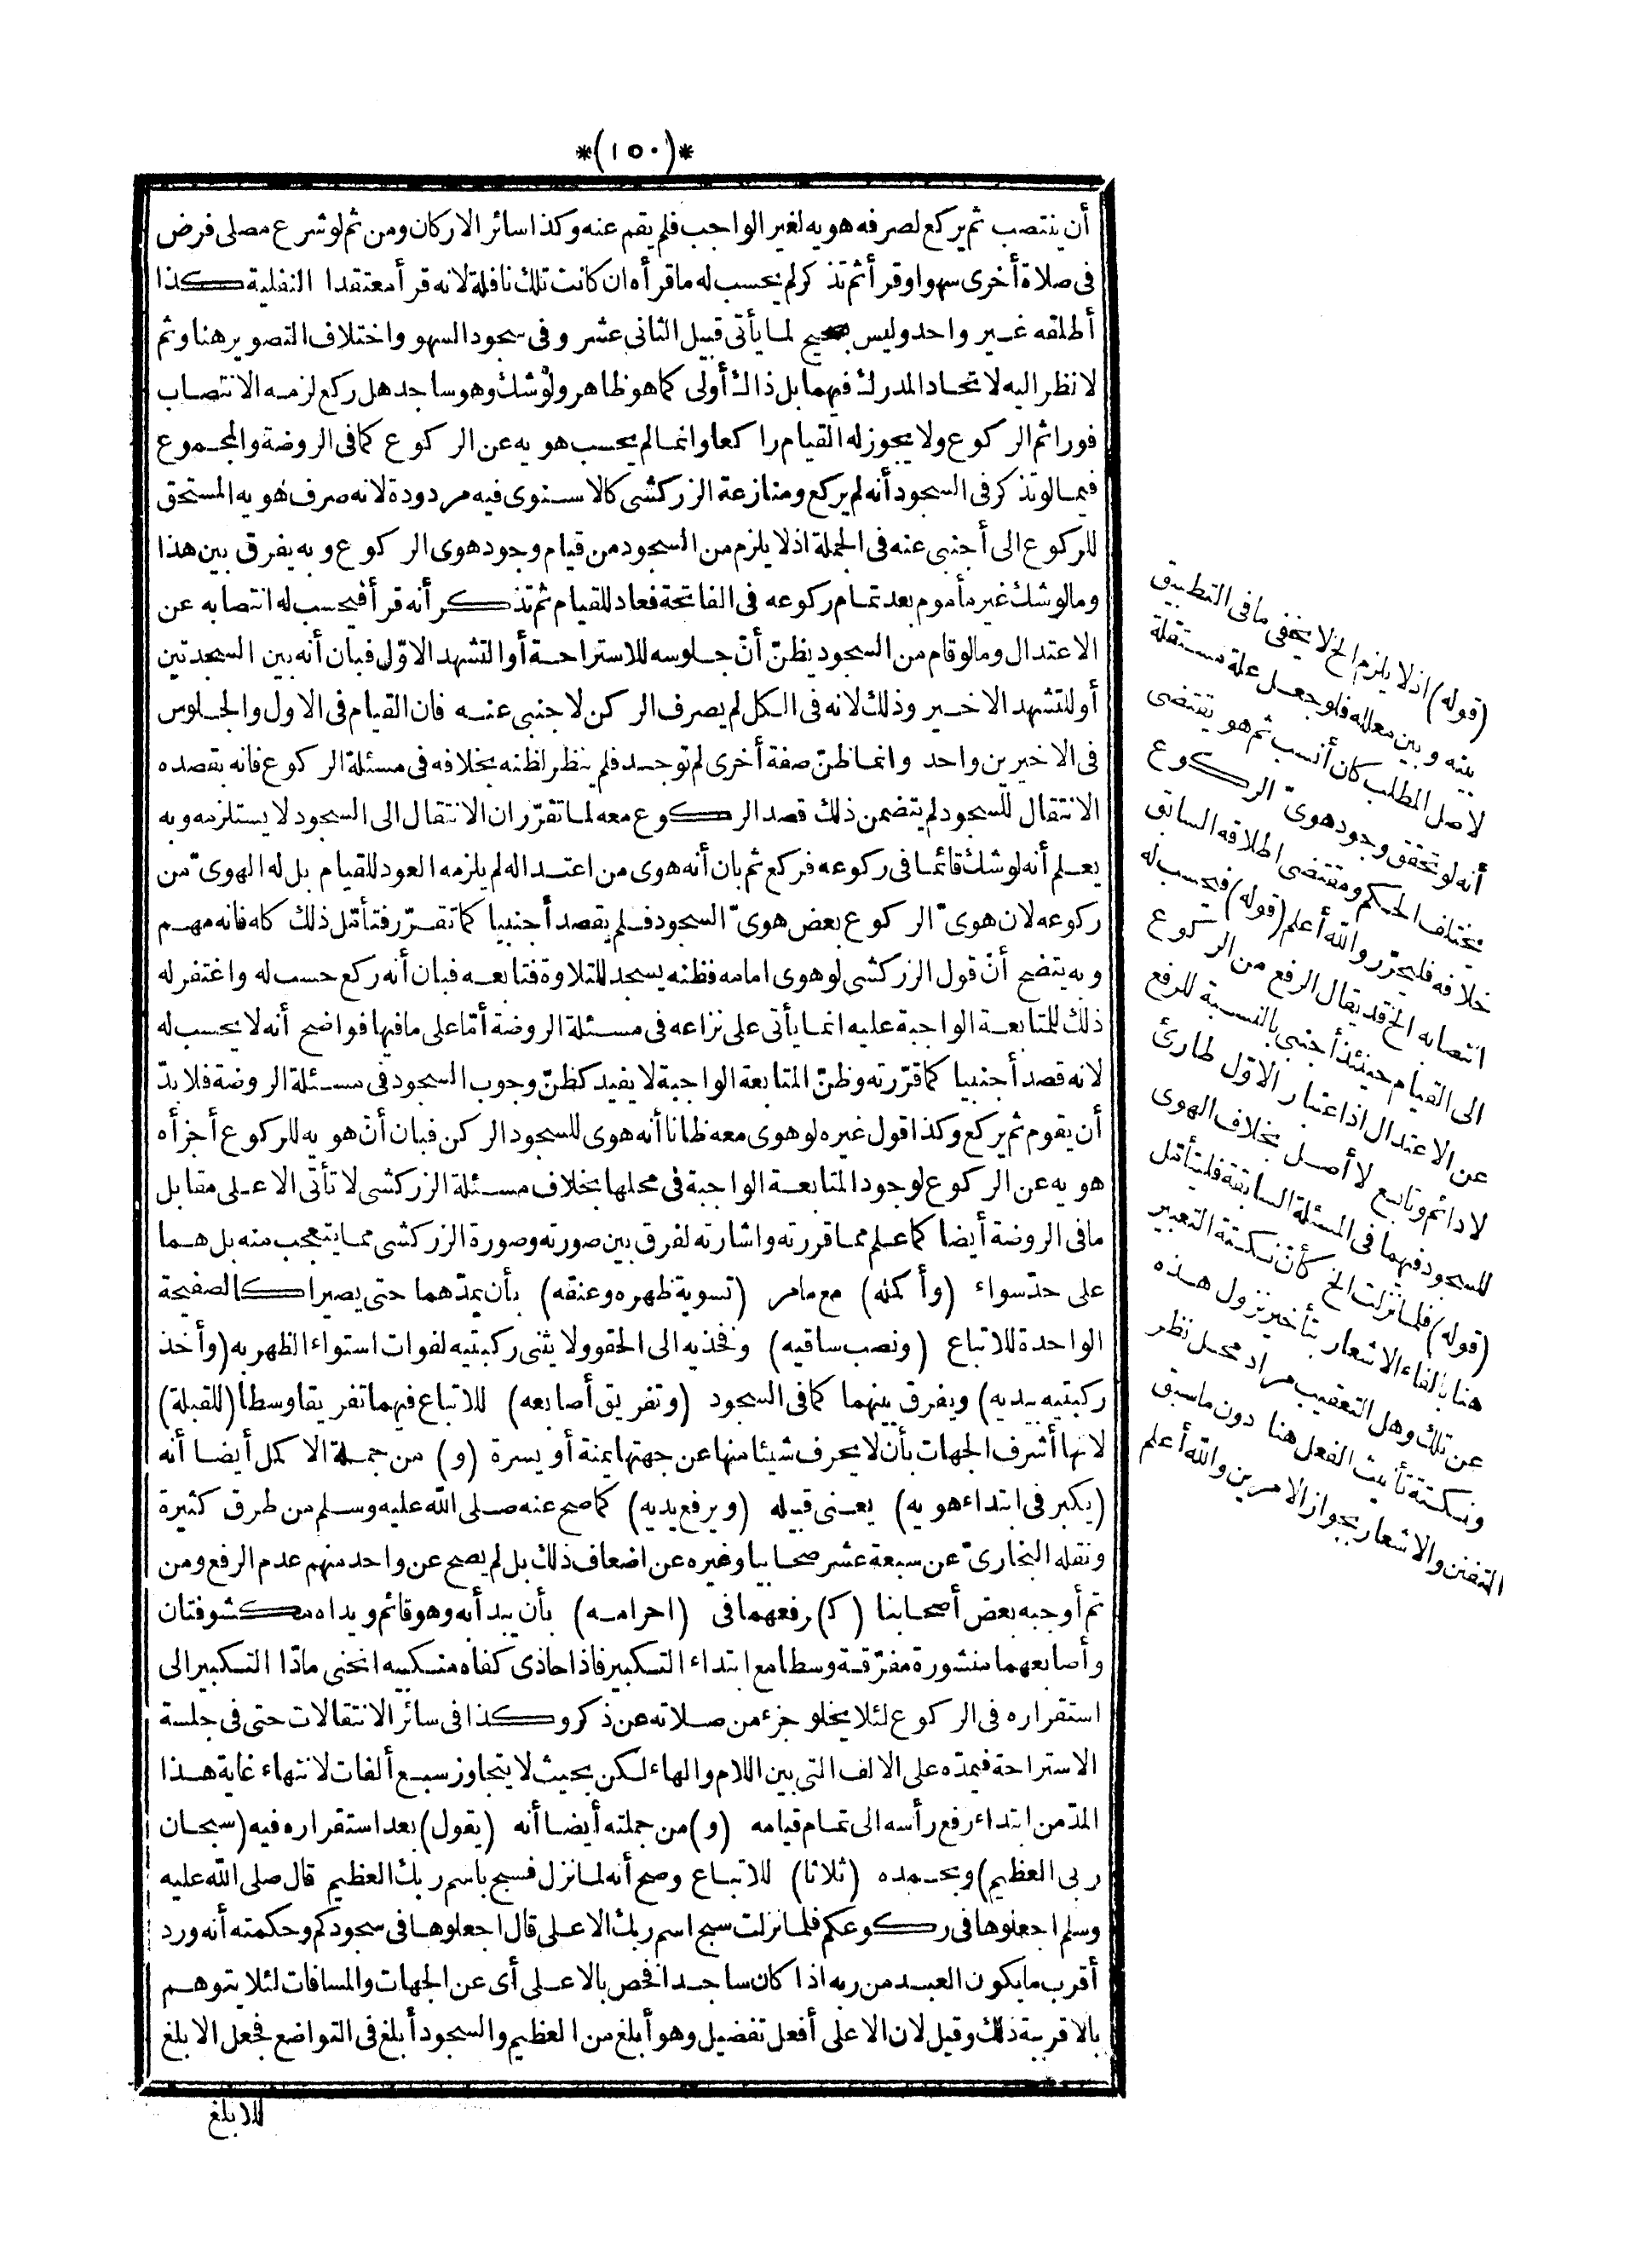 *(١٥٠)*
أن ينتصب ثم يركع لصرفه هويه لغير الواجب فلم يقم عنه وكذا سائر الاركان ومن ثم لو شرع مصلى فرض
فى صلاة أخرى سهوا وقرأ ثم تذكر لم يحسب له ما قرأه ان كانت تلك نافلة لانه قرأ معتقدا النفلية كذا
أطلقه غير واحد وليس بصحيح لما يأتى قبيل الثانى عشر وفى سجود السهو واختلاف التصوير هنا وثم
لا نظر اليه لاتحاد المدرك فيهما بل ذاك أولى كما هو ظاهر ولو شك وهو ساجد هل ركع لزمه الانتصاب
فورا ثم الركوع ولا يجوز له القيام راكعا وانما لم يحسب هويه عن الركوع كما فى الروضة والمجموع
فيما لو تذكر فى السجود أنه لم يركع ومنازعة الزركشى كالاسنوى فيه مردودة لانه صرف هويه المستحق
للركوع الى أجنبى عنه فى الجملة اذ لا يلزم من السجود من قيام وجود هوى الركوع وبه يفرق بين هذا
وما لو شك غير مأموم بعد تمام ركوعه فى الفاتحة فعاد للقيام ثم تذكر أنه قرأ فيحسب له انتصابه عن
الاعتدال وما لو قام من السجود يظنّ أنّ جلوسه للاستراحة أو التشهد الاوّل فبان أنه بين السجدتين
أو للتشهد الاخير وذلك لانه فى الكل لم يصرف الركن لاجنبى عنه فان القيام فى الاول والجلوس
فى الاخيرين واحد وانما ظنّ صفة أخرى لم توجد فلم ينظر لظنه بخلافه فى مسئلة الركوع فانه بقصده
الانتقال للسجود لم يتضمن ذلك قصد الركوع معه لما تقرّر ان الانتقال الى السجود لا يستلزمه وبه
يعلم أنه لو شك قائما فى ركوعه فركع ثم بان أنه هوى من اعتداله لم يلزمه العود للقيام بل له الهوىّ من
ركوعه لان هوىّ الركوع بعض هوىّ السجود فلم يقصد أجنبيا كما تقرّر فتأمّل ذلك كله فانه مهم
وبه يتضح أنّ قول الزركشى لو هوى امامه فظنه يسجد للتلاوة فتابعه فبان أنه ركع حسب له واغتفر له
ذلك للمتابعة الواجبة عليه انما يأتى على نزاعه فى مسئلة الروضة أمّا على ما فيها فواضح أنه لا يحسب له
لانه قصد أجنبيا كما قرّرته وظنّ المتابعة الواجبة لا يفيد كظنّ وجوب السجود فى مسئلة الروضة فلا بدّ
أن يقوم ثم يركع وكذا قول غيره لو هوى معه ظانا أنه هوى للسجود الركن فبان أنّ هويه للركوع أجزأه
هويه عن الركوع لوجود المتابعة الواجبة فى محلها بخلاف مسئلة الزركشى لا تأتى الا على مقابل
ما فى الروضة أيضا كما علم مما قررته واشارته لفرق بين صورته وصورة الزركشى مما يتعجب منه بل هما
على حدّ سواء (وأكمله) مع ما مر (تسوية ظهره وعنقه) بأن يمدّهما حتى يصيرا كالصفيحة
الواحدة للاتباع (ونصب ساقيه) وفخذيه الى الحقو ولا يثنى ركبتيه لفوات استواء الظهر به (وأخذ
ركبتيه بيديه) ويفرق بينهما كما فى السجود (وتفريق أصابعه) للاتباع فيهما تفريقا وسطا (للقبلة)
لانها أشرف الجهات بأن لا يحرف شيئا منها عن جهتها يمنة أو يسرة (و) من جملة الاكمل أيضا أنه
(يكبر فى ابتداء هويه) يعنى قبيله (ويرفع يديه) كما صح عنه صلى الله عليه وسلم من طرق كثيرة
ونقله البخارىّ عن سبعة عشر صحابيا وغيره عن اضعاف ذلك بل لم يصح عن واحد منهم عدم الرفع ومن
ثم أوجبه بعض أصحابنا (كـ) رفعهما فى (احرامه) بأن يبدأ به وهو قائم ويداه مكشوفتان
وأصابعهما منشورة مفرّقة وسطا مع ابتداء التكبير فاذا حاذى كفاه منكبيه انحنى مادّا التكبير الى
استقراره فى الركوع لئلا يخلو جزء من صلاته عن ذكر وكذا فى سائر الانتقالات حتى فى جلسة
الاستراحة فيمدّه على الالف التى بين اللام والهاء لكن بحيث لا يتجاوز سبع ألفات لانتهاء غاية هذا
المدّ من ابتداء رفع رأسه الى تمام قيامه (و) من جملته أيضا أنه (يقول) بعد استقراره فيه (سبحان
ربى العظيم) وبحمده (ثلاثا) للاتباع وصح أنه لما نزل فسبح باسم ربك العظيم قال صلى الله عليه
وسلم اجعلوها فى ركوعكم فلما نزلت سبح اسم ربك الاعلى قال اجعلوها فى سجودكم وحكمته أنه ورد
أقرب ما يكون العبد من ربه اذا كان ساجدا فخص بالاعلى أى عن الجهات والمسافات لئلا يتوهم
بالاقربية ذلك وقيل لان الاعلى أفعل تفضيل وهو أبلغ من العظيم والسجود أبلغ فى التواضع فجعل الابلغ
للابلغ
(قوله) اذ لا يلزم الخ لا يخفى ما فى التطبيق
بينه وبين معلله فلو جعل علة مستقلة
لاصل المطلب كان أنسب ثم هو يقتضى
أنه لو تحقق وجود هوىّ الركوع
يختلف الحكم ومقتضى اطلاقه السابق
خلافه فليحرّر والله أعلم (قوله) فيحسب له
انتصابه الخ قد يقال الرفع من الركوع
الى القيام حينئذ أجنبى بالنسبة للرفع
عن الاعتدال اذ اعتبار الاوّل طارئ
لا دائم وتابع لا أصل بخلاف الهوى
للسجود فيهما فى المسئلة السابقة فليتأمّل
(قوله) فلما نزلت الخ كأنّ نكتة التعبير
هنا بالفاء الاشعار بتأخير نزول هذه
عن تلك وهل التعقيب مراد محل نظر
ونكتة تأنيث الفعل هنا دون ما سبق
التفنن والاشعار بجواز الامرين والله أعلم